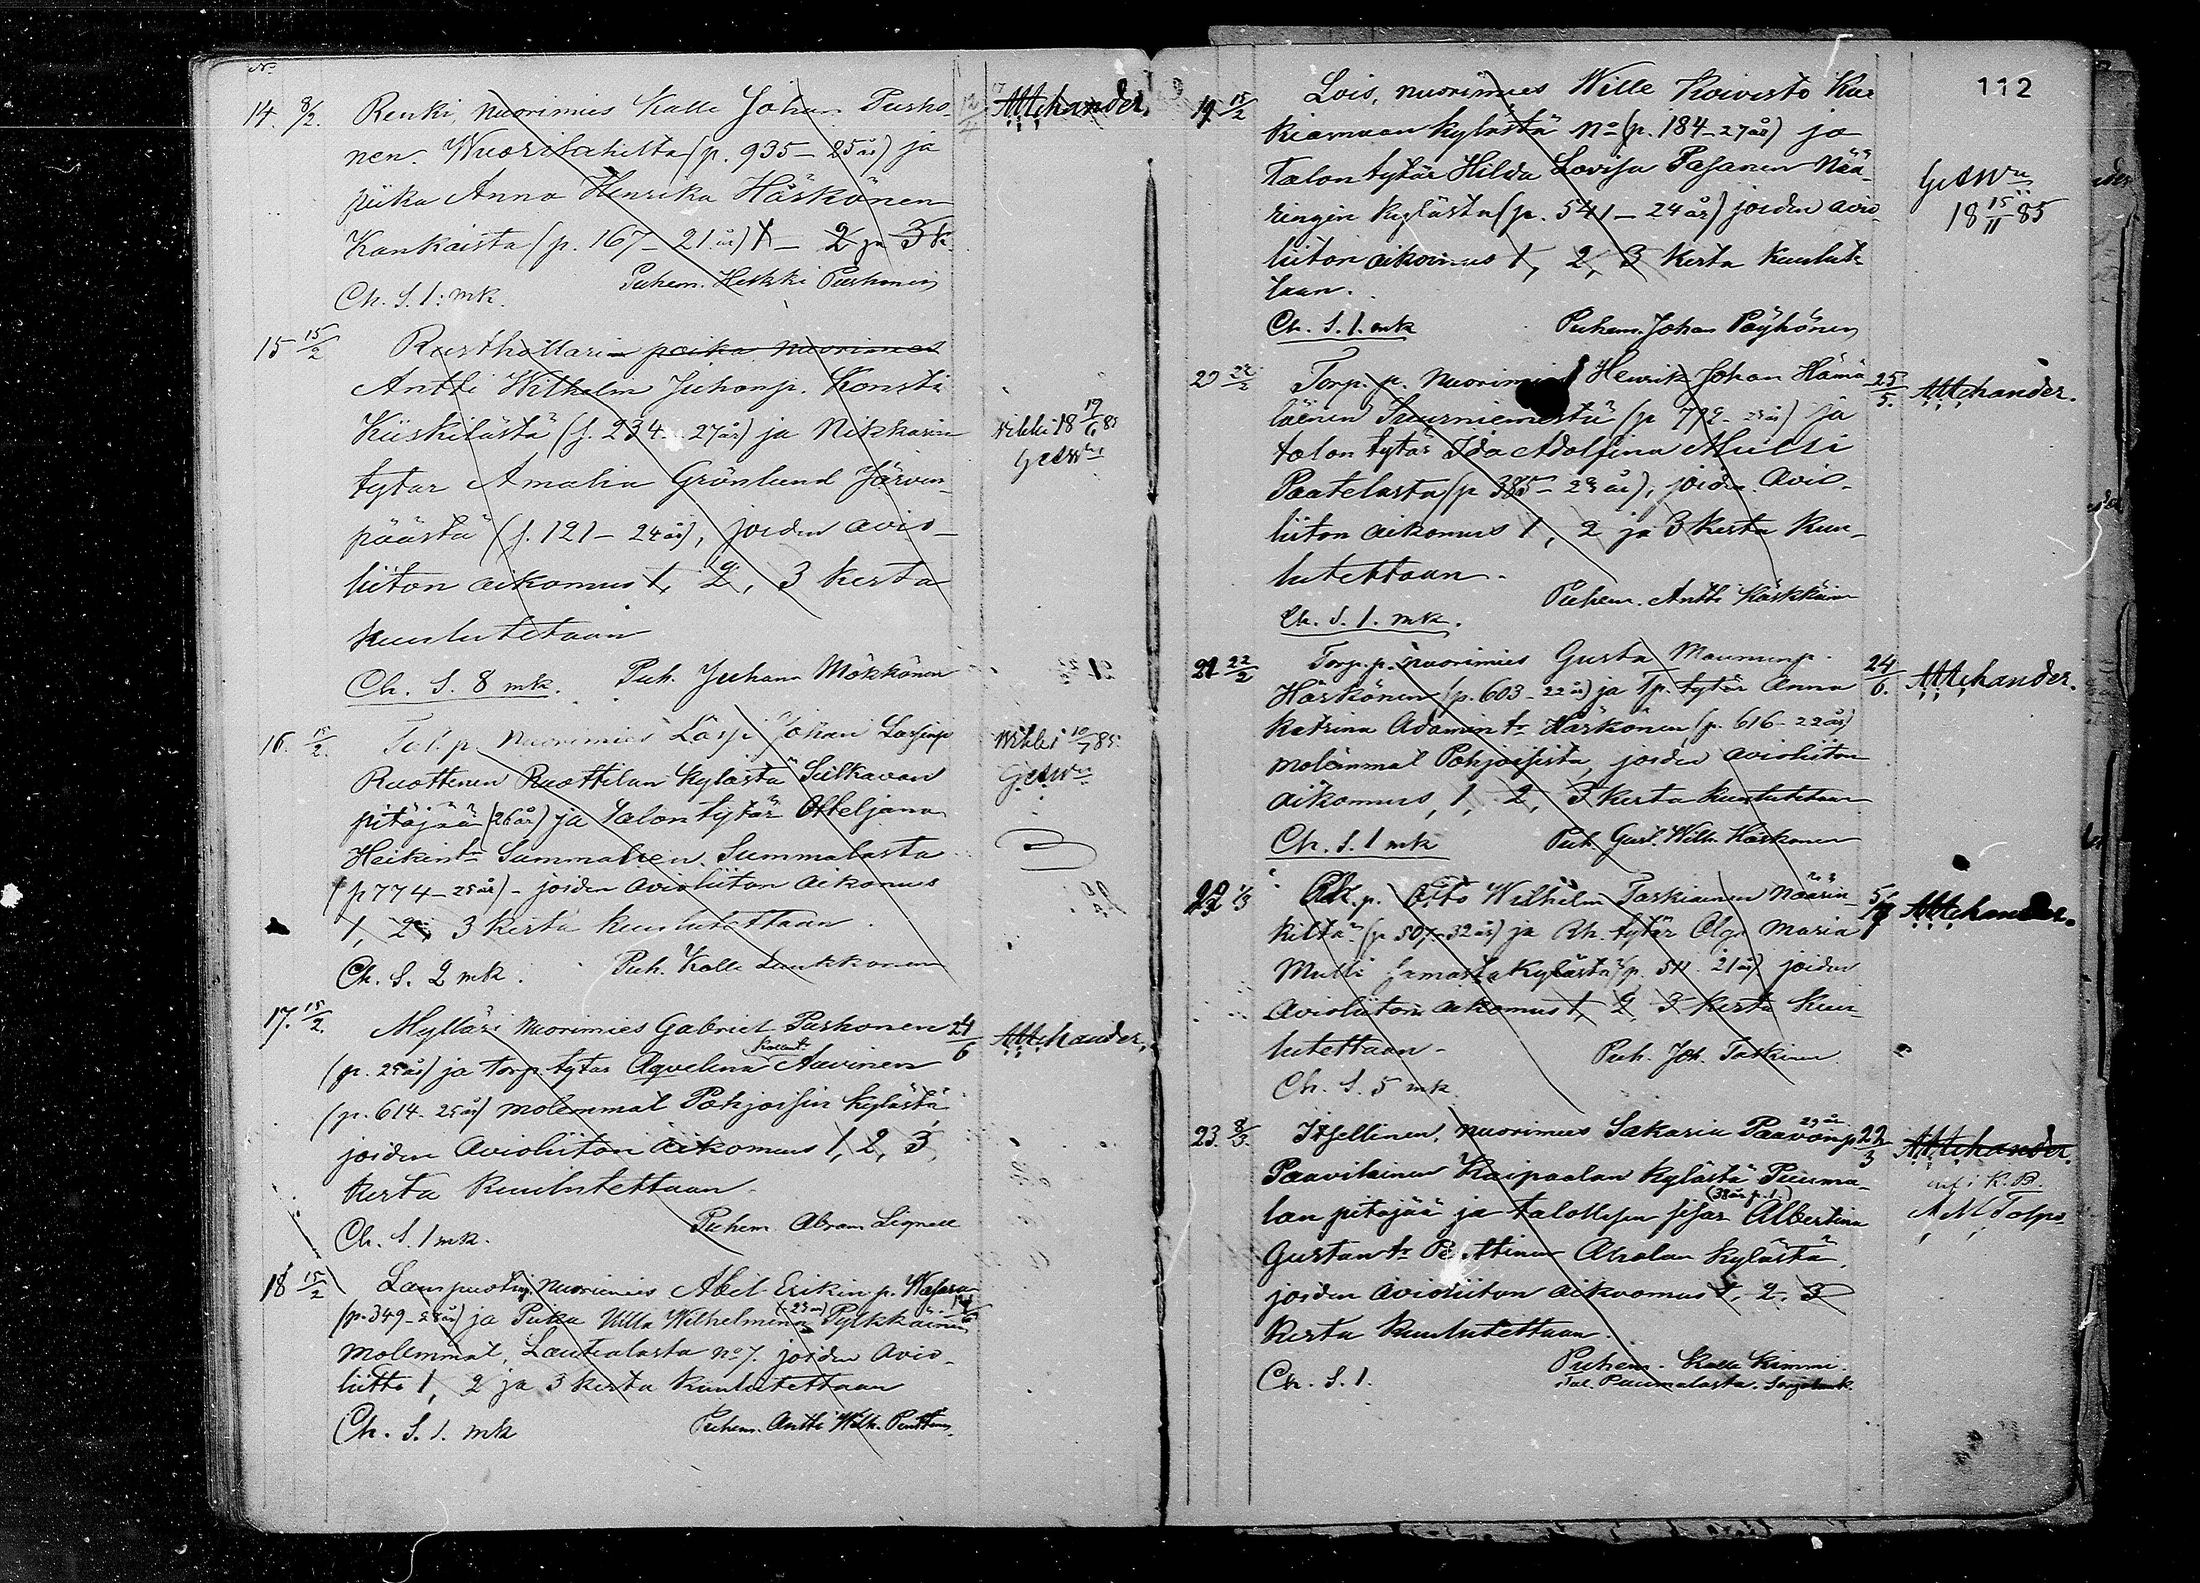 112
14. 8/2. Renki, nuorimies Kalle Johan Purho-
nen. Wuorilahelta (p. 935 – 25 år) ja
piika Anna Henrika Häskönen
Kankaista (p. 167 – 21 år) 1 – 2 ja 3 k.
Puhem. Heikki Purhonen
Ch. S. 1: mk.
15 15/2 Rusthollarin poika nuorimies
Antti Wilhelm Juhonp. Konsti
Kiiskilästä (s. 234 – 27 år) ja Nikkarin
tytär Amalia Grönlund Järven-
päästä (s. 121 – 24 år), joiden avio-
liiton aikomus 1, 2, 3 kerta
kuulutetaan
Ch. S. 8 mk. Puh. Juhana Mökkönen
16. 15/2. Tal. p. Nuorimies Lassi Johan Lassinp
Ruottinen Ruottilan kylästä Sulkavan
pitäjää (26 år) ja talon tytär
Heikint. Summalasta
(p 774 – 25 år) – joiden avioliiton aikomus
1, 2, 3 kerta kuulutettaan.
Ch. S. 2 mk. Puh. Kalle Laukkanen
17. 15/2. Mylläri nuorimies Gabriel Purhonen 24/6
(p. 25 år) ja torp. tytär Aqvelina Auvinen
(p. 614 – 25 år) molemmat Pohjoisin kylästä
joiden avioliiton aikomus 1, 2, 3,
kerta kuulutettaan.
Puhem. Abram Lignell
Ch. S. 1 mk.
18 15/2 Lampuotin nuorimies Abel Erikin p. Wasara
(p. 349 – 28 år) ja Piika Ulla Wilhelmina Pylkkäinen
molemmat, Lautialasta no 7. joiden avio-
liitto 1, 2 ja 3 kerta kuulutettaan
Ch. S. 1. mk Puhem. Antti Wilh.
19 15/2 Lois, nuorimies Wille Koivisto Kur-
kiamaan kylästä No (p. 184 – 27 år) ja
talon tytär Hilda Lovisa Pasanen Nää-
ringin kylästä (p. 541 – 24 år) joiden avio-
liiton aikomus 1, 2, 3 kerta kuulute-
taan.
Ch. S. 1. mk Puhem. Johan Pöyhönen
18 15/11 85
20 22/2 Torp. p. nuorimies Henrik Johan Hämä- 25/5.
läinen Suurniemestä (p 792 – år) ja
talon tytär Ida Adolfina Multi
Paatelasta (p 385 – år), joiden avio-
liiton aikomus 1, 2 ja 3 kerta kuu-
lutettaan.
Puhem. Antti Käskkäinen
Ch. S. 1. mk.
21 22/2 Torp. p. nuorimies Gusta Maununp. 24/6.
Häskönen (p. 603 – 22 år) ja Tp. tytär Anna
Katrina Adamint. Häskönen (p. 616 – 22 år)
molemmat Pohjoisista, joiden avioliiton
aikomus, 1, 2, 3 kerta kuulutetaan
Ch. S. 1 mk Puh. Gust. Wilh. Häskönen
22 1/3 Rh. p. Otto Wilhelm Taskinen Näärin-
kiltä (p 507 – 32 år) ja Rh. tytär Olga Maria
Multi samasta kylästä (p. 511. 21 år) joiden
avioliiton aikomus 1, 2, 3 kerta kuu-
lutettaan.
Puh. Joh. Taskinen
Ch. S. 5 mk.
23. 8/3. Itsellinen, nuorimies Sakaria Paavonp 22/3
Paavilainen Kaipaalan kylästä Puuma-
lan pitäjää ja talollisen sisar Albertina
Gustan t. Anolan kylästä,
joiden avioliiton aikomus 1, 2, 3
kerta kuulutettaan.
Puhem. Kalle Kimmi.
Ch. S. 1.